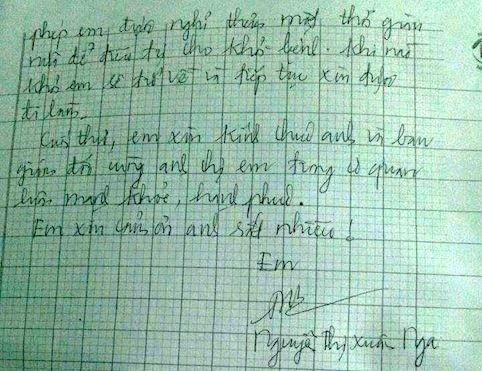 phép em được nghỉ thêm một thời gian
nữa để điều trị cho khỏi bệnh. Khi nào
khỏi em sẽ trở về và tiếp tục xin được
đi làm.
Cuối thư, em xin kính chúc anh và ban
giám đốc cùng anh chị em trong cơ quan
luôn mạnh khỏe, hạnh phúc.
Em xin cảm ơn anh rất nhiều!
Em
Nguyễn Thị Xuân Nga